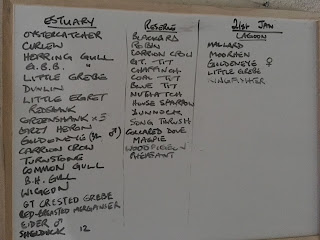 ESTUARY
OYSTERCATCHER
CURLEW
HERRING GULL
G.B.B. "
LITTLE GREBE
DUNLIN
LITTLE EGRET
REDSHANK
GREENSHANK x 3
GREY HERON
GOLDENEYE (3L ♂)
CARRION CROW
TURNSTONE
COMMON GULL
B.H. GULL
WIGEON
GT CRESTED GREBE
RED-BREASTED MERGANSER
EIDER ♂
SHELDUCK 12
RESERVE
BLACKBIRD
ROBIN
CARRION CROW
GT. TIT
CHAFFINCH
COAL TIT
BLUE TIT
NUTHATCH
HOUSE SPARROW
DUNNOCK
SONG THRUSH
COLLARED DOVE
MAGPIE
WOODPIGEON
PHEASANT
21st JAN
LAGOON
MALLARD
MOORHEN
GOLDENEYE ♀
LITTLE GREBE
KINGFISHER